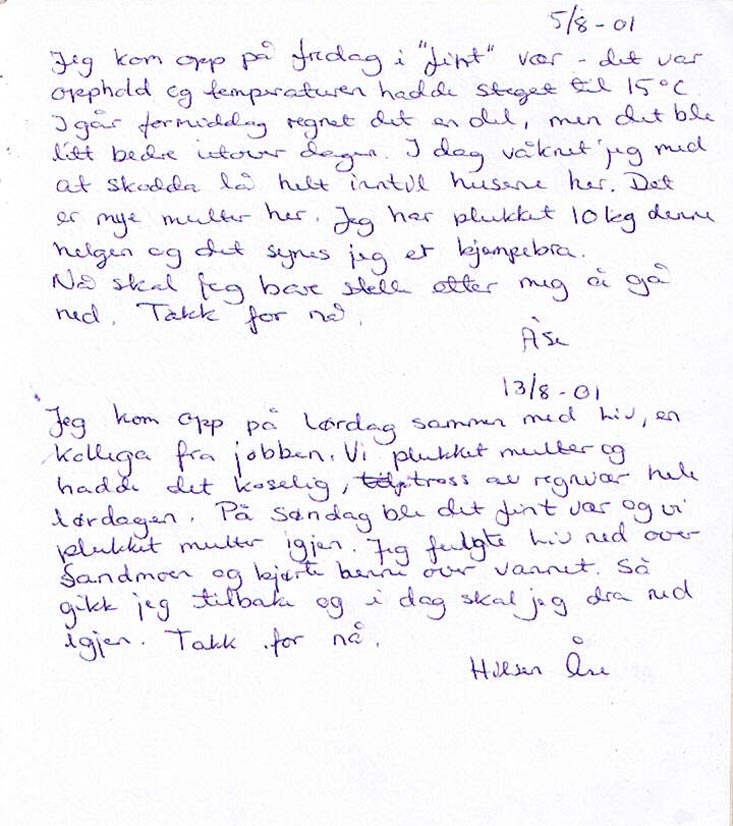 5/8-01
Jeg kom opp på fredag i "fint" vær - det var
opphold og temperaturen hadde steget til 15°C.
I går formiddag regnet det en del, men det ble
litt bedre utover dagen. I dag våknet jeg med
at skodda lå helt inntil husene her. Det
er mye multer her. Jeg har plukket 10 kg denne
helgen og det synes jeg er kjempebra.
Nå skal jeg bare stelle etter meg å gå
ned. Takk for nå.
Åse
13/8-01
Jeg kom opp på lørdag sammen med Liv, en
kollega fra jobben. Vi plukket multer og
hadde det koselig, tross av regnvær hele
lørdagen. På søndag ble det fint vær og vi
plukket multer igjen. Jeg fulgte Liv ned over
Sandmoen og kjørte henne over vannet. Så
gikk jeg tilbake og i dag skal jeg dra ned
igjen. Takk for nå.
Hilsen Åse